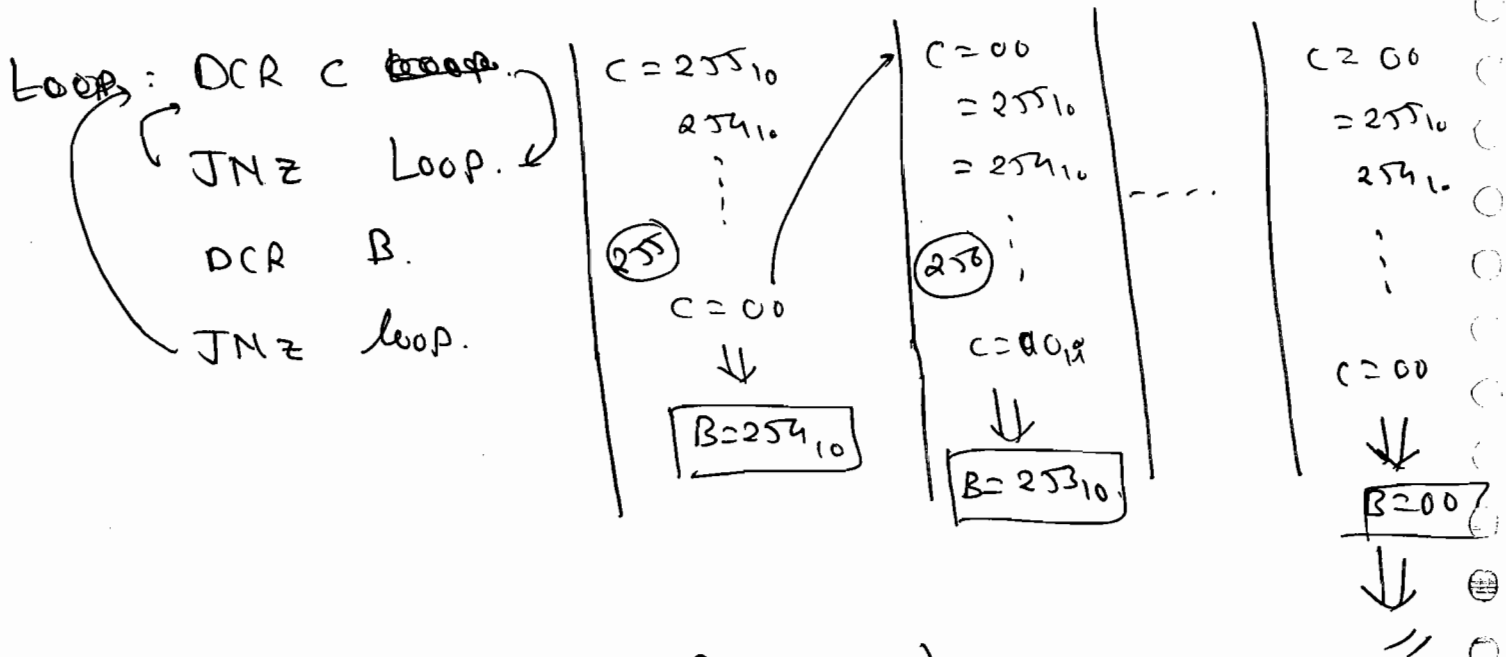 Loop: DCR C
JNZ Loop.
DCR B.
JNZ loop.
C = 255₁₀
254₁₀
255
C = 00
B=254₁₀
C = 00
= 255₁₀
= 254₁₀
256
C=00
B= 253₁₀.
.....
C = 00
= 255₁₀
254₁₀
C = 00
B=00